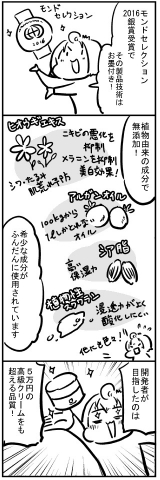 モンドセレクション
2016
銀賞受賞で
その製品技術は
お墨付き！
モンド
セレクション
2016
植物由来の成分で
無添加！
ヒオウギエキス
ニキビの悪化を
抑制
メラニンを抑制
美白効果！
シワ・たるみ
肌荒れ予防
アルガンオイル
100kgから
1Lしかとれない
オイル
シア脂
高い
保湿力
植物性
スクワラン
浸透力が良く
酸化しにくい
希少な成分が
ふんだんに
使用されています
開発者が
目指したのは
5万円の
高級クリームをも
超える品質！